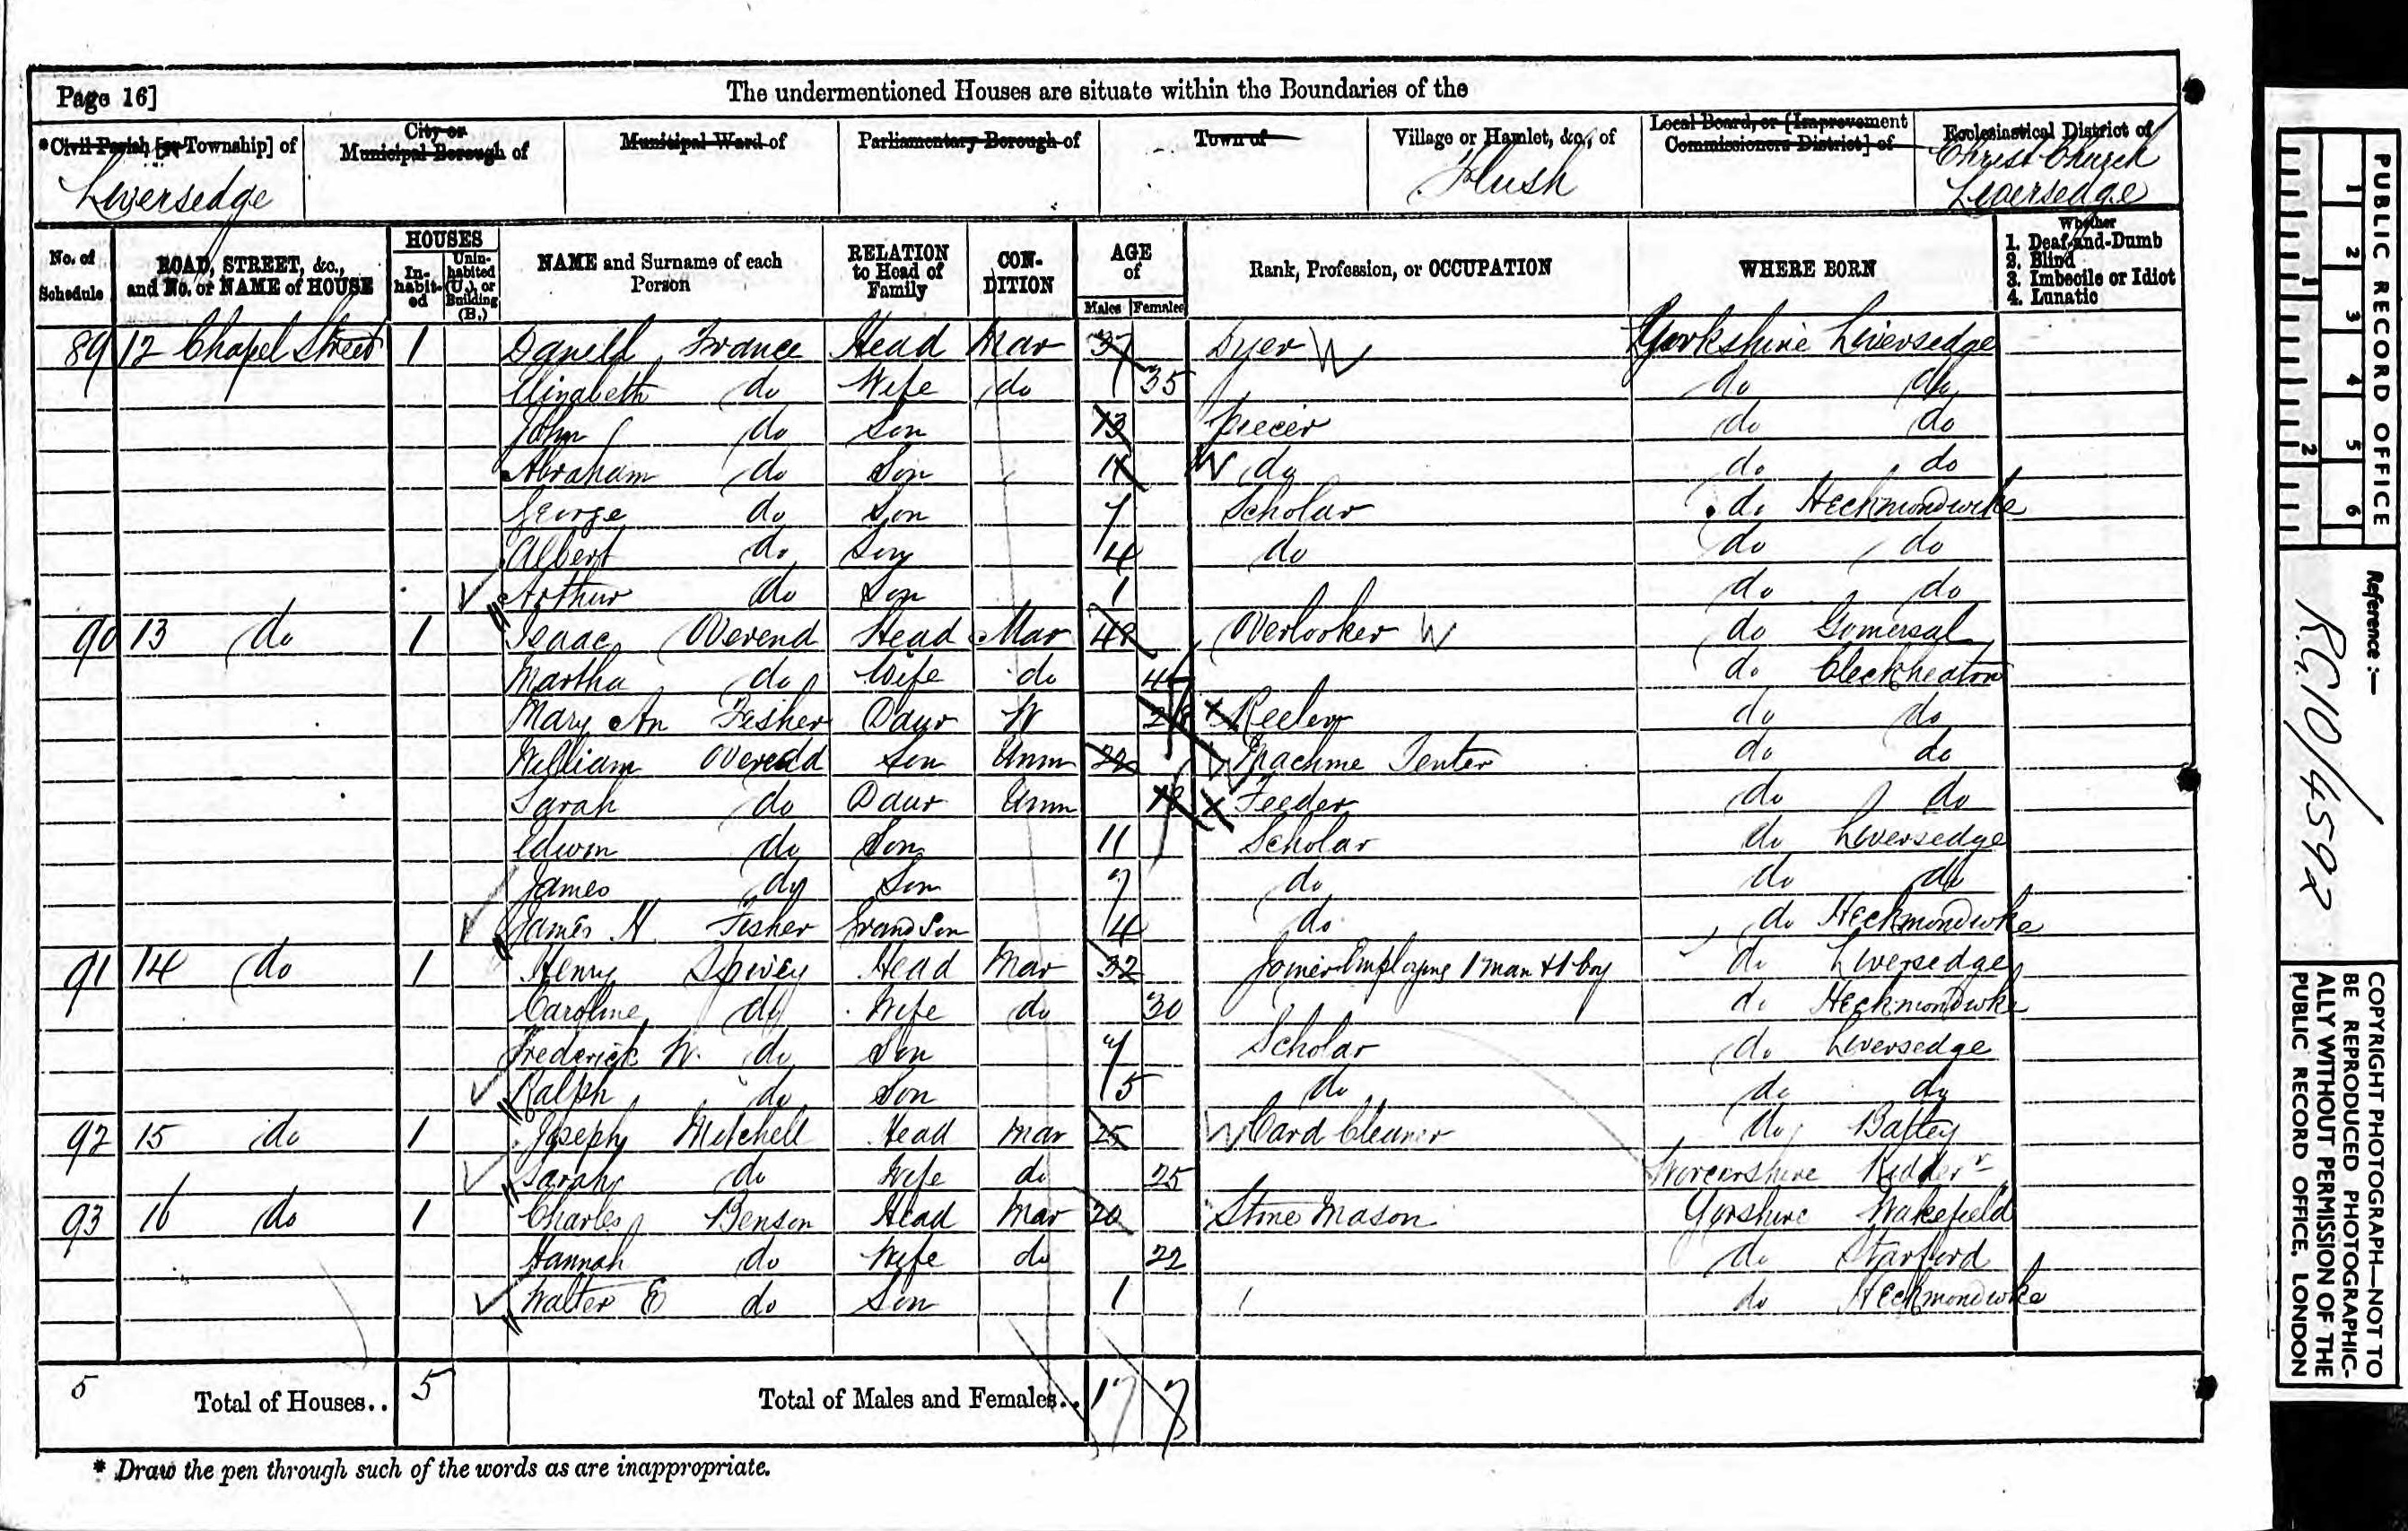 Page 16]
The undermentioned Houses are situate within the Boundaries of the
*Civil Parish [or Township] of
City or Municipal Borough of
Municipal Ward of
Parliamentary Borough of
Town of
Village or Hamlet, &c., of
Local Board, or [Improvement Commissioners District] of
Ecclesiastical District of
Liversedge
Flush
Christ Church Liversedge
No. of Schedule
ROAD, STREET, &c., and No. or NAME of HOUSE
HOUSES
In-habit-ed
Unin-habited (U.), or Building (B.)
NAME and Surname of each Person
RELATION to Head of Family
CON-DITION
AGE of
Males
Females
Rank, Profession, or OCCUPATION
WHERE BORN
Whether
1. Deaf-and-Dumb
2. Blind
3. Imbecile or Idiot
4. Lunatic
89 12 Chapel Street 1 Daniel France Head Mar 37 Dyer W Yorkshire Liversedge
Elizabeth do Wife do 35 do do
John do Son 13 Piecer do do
Abraham do Son 11 W do do do
George do Son 7 Scholar do Heckmondwike
Albert do Son 4 do do do
Arthur do Son 1 do do
90 13 do 1 Isaac Overend Head Mar 48 Overlooker W do Gomersal
Martha do Wife do do Cleckheaton
Mary An Fisher Daur W Reeler do do
William Overedd Son Unm 22 Machine Tenter do do
Sarah do Daur Unm 18 Feeder do do
Edwin do Son 11 Scholar do Liversedge
James do Son 7 do do do
James H Fisher Grand Son 4 do do Heckmondwke
91 14 do 1 Henry Spivey Head Mar 32 Joiner Employing 1 man & 1 boy do Liversedge
Caroline do Wife do 30 do Heckmondwke
Frederick W. do Son 7 Scholar do Liversedge
Ralph do Son 5 do do do
92 15 do 1 Joseph Mitchell Head Mar 25 W Card Cleaner do Batley
Sarah do Wife do 25 Kidder
93 16 do 1 Charles Benson Head Mar 20 Stone Mason Yorshire Wakefield
Hannah do Wife do 22 do
Walter E do Son 1 do Heckmondwke
5 Total of Houses.. 5 Total of Males and Females.. 17 7
* Draw the pen through such of the words as are inappropriate.
PUBLIC RECORD OFFICE
1 2 3 4 5 6
1 2
Reference :—
R.G. 10/4592
COPYRIGHT PHOTOGRAPH—NOT TO
BE REPRODUCED PHOTOGRAPHIC-
ALLY WITHOUT PERMISSION OF THE
PUBLIC RECORD OFFICE, LONDON